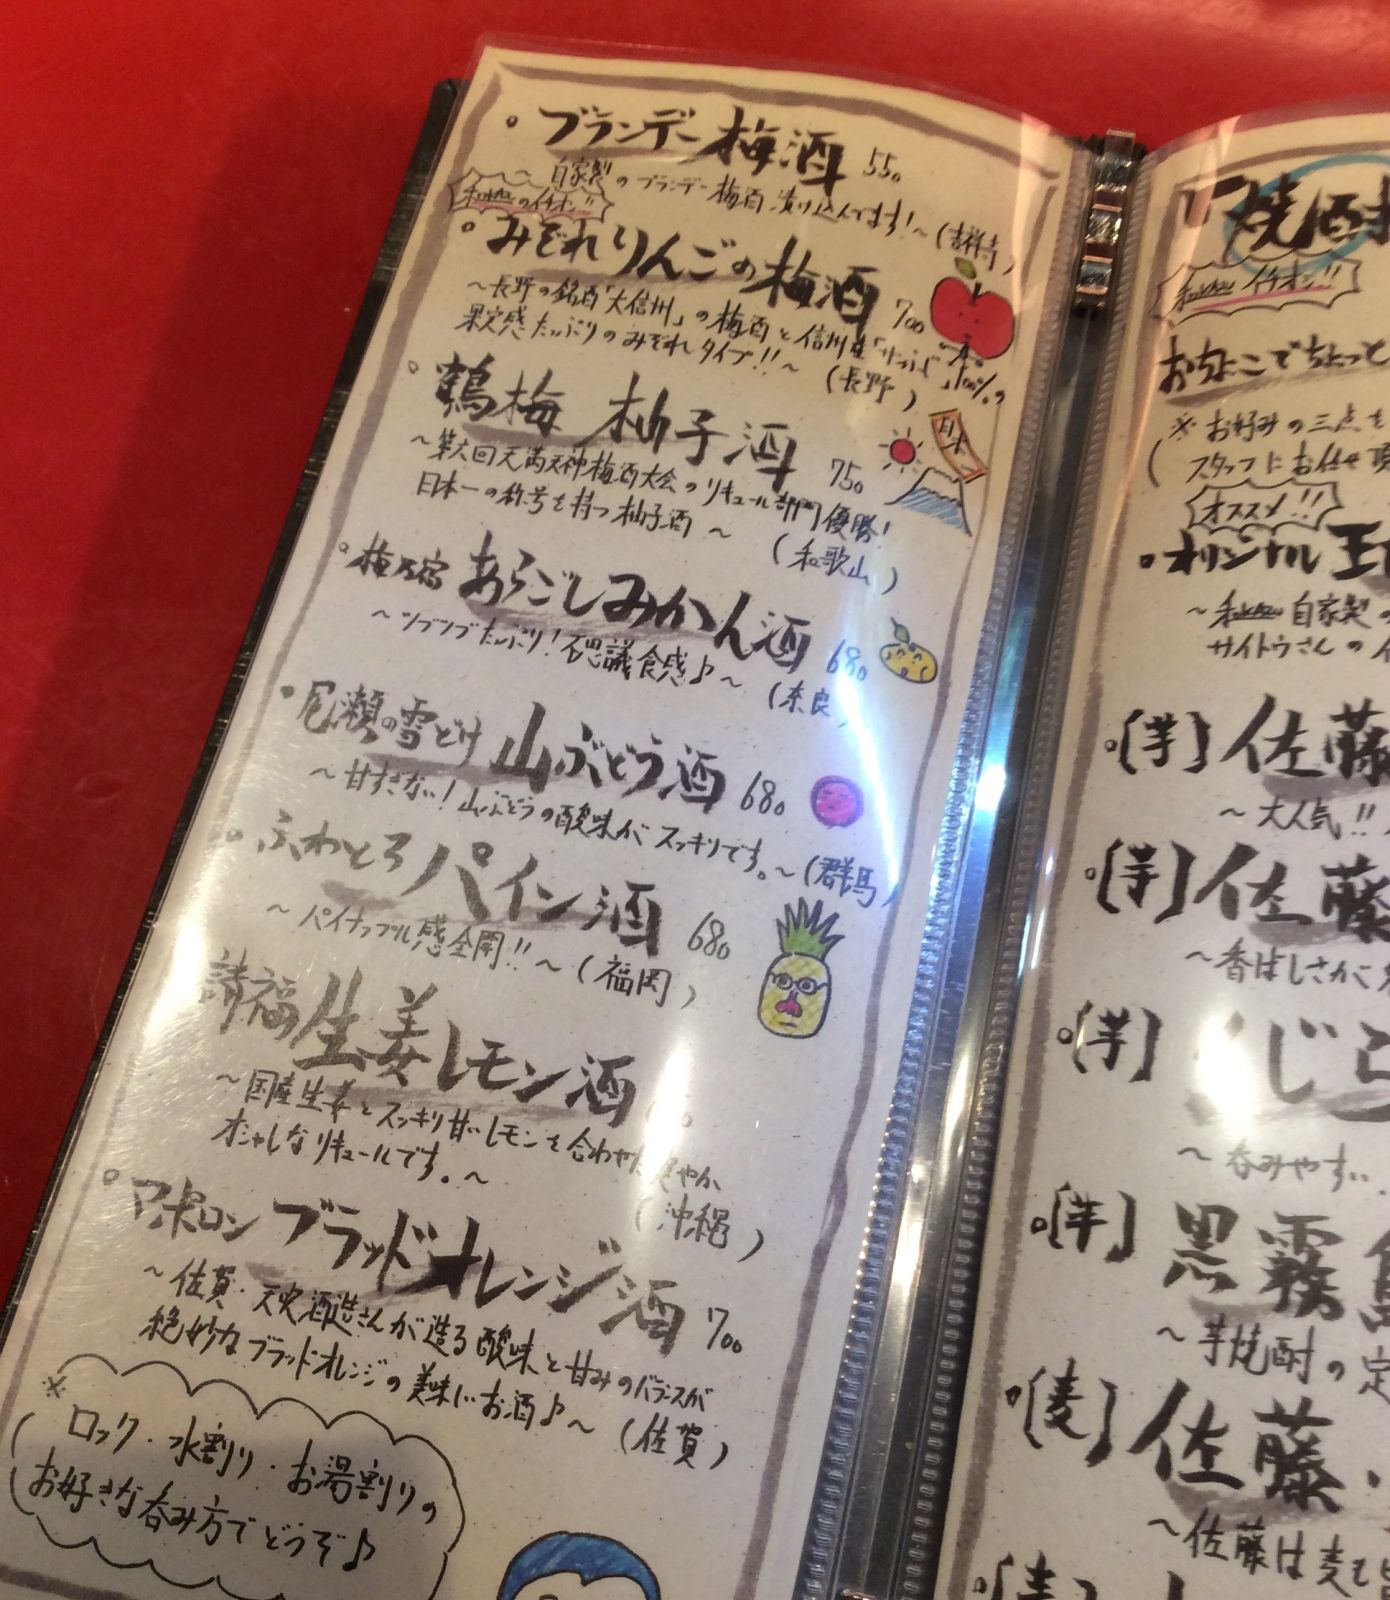 ブランデー梅酒 550
～自家製のブランデー梅酒漬け込んでます!～(吉祥寺)
のイチオシ!!
みぞれりんごの梅酒 700
～長野の銘酒「大信州」の梅酒と信州産 100%の
果実感たっぷりのみぞれタイプ!!～ (長野)
鶴梅 柚子酒 750
日本一
～第六回天満天神梅酒大会のリキュール部門優勝!
日本一の称号を持つ柚子酒～ (和歌山)
梅乃宿 あらごしみかん酒 680
～ツブツブたっぷり!不思議食感♪～ (奈良)
尾瀬の雪どけ 山ぶどう酒 680
～甘すぎない!山ぶどうの酸味がスッキリです。～(群馬)
ふわとろ パイン酒 680
～パイナップル感全開!!～(福岡)
請福 生姜レモン酒
～国産生姜とスッキリ甘いレモンを合わせた爽やか、
オシャレなリキュールです。～ (沖縄)
アポロン ブラッドオレンジ酒 700
～佐賀・天吹酒造さんが造る酸味と甘みのバランスが
絶妙なブラッドオレンジの美味しいお酒♪～ (佐賀)
※
ロック・水割り・お湯割りの
お好きな呑み方でどうぞ♪
焼酎
イチオシ!!
おちょこでちょっと
※お好みの三点を
スタッフにお任せ頂
オススメ!!
オリジナル 王
～ 自家製の
サイトウさんの
[芋] 佐藤
～大人気!!
[芋] 佐藤
～香ばしさが
[芋] くじら
～呑みやすい
[芋] 黒霧島
～芋焼酎の定
[麦] 佐藤・
～佐藤は麦も旨
[麦]